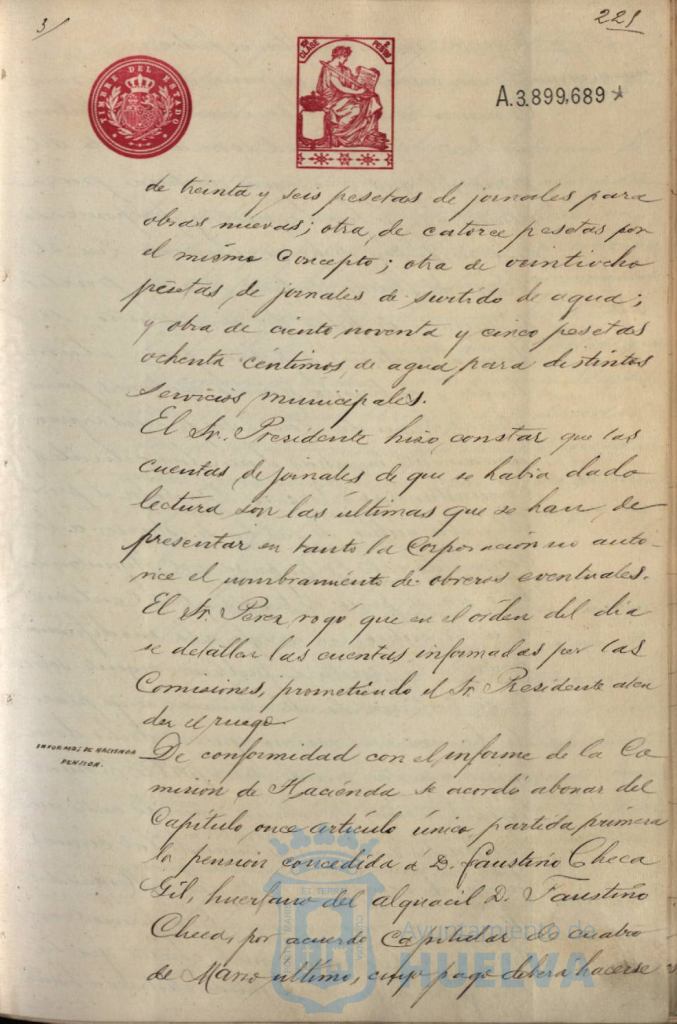 3/
221
TIMBRE DEL ESTADO
CLASE
PESETA
A.3.899,689*
de treinta y seis pesetas de jornales para
obras nuevas; otra de catorce pesetas por
el mismo concepto; otra de veintiocho
pesetas de jornales de surtido de agua;
y otra de ciento noventa y cinco pesetas
ochenta céntimos de agua para distintos
servicios municipales.
El Sr. Presidente hizo constar que las
cuentas de jornales de que se había dado
lectura son las últimas que se han de
presentar en tanto la Corporación no auto-
rice el nombramiento de obreros eventuales.
El Sr. Perez rogó que en el orden del dia
se detallen las cuentas informadas por las
Comisiones, prometiendo el Sr. Presidente aten
der el ruego.
INFORMES DE HACIENDA
PENSION.
De conformidad con el informe de la Co
misión de Hacienda se acordó abonar del
Capítulo once artículo único, partida primera
la pensión concedida á D. Faustino Checa
Gil, huerfano del alguacil D. Faustino
Checa, por acuerdo Capitular de cuatro
de Marzo último, cuyo pago deberá hacerse
Ayuntamiento de
HUELVA